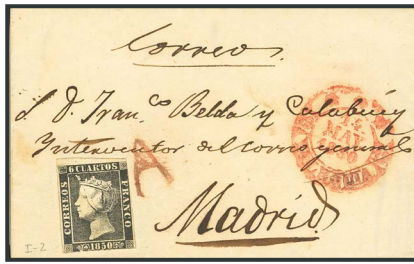 Correo.
S. D. Fran.co Belda y Calabuig
Interventor del correo general
A
Madrid
6 CUARTOS
CORREOS
FRANCO
1850
MAY
I-2